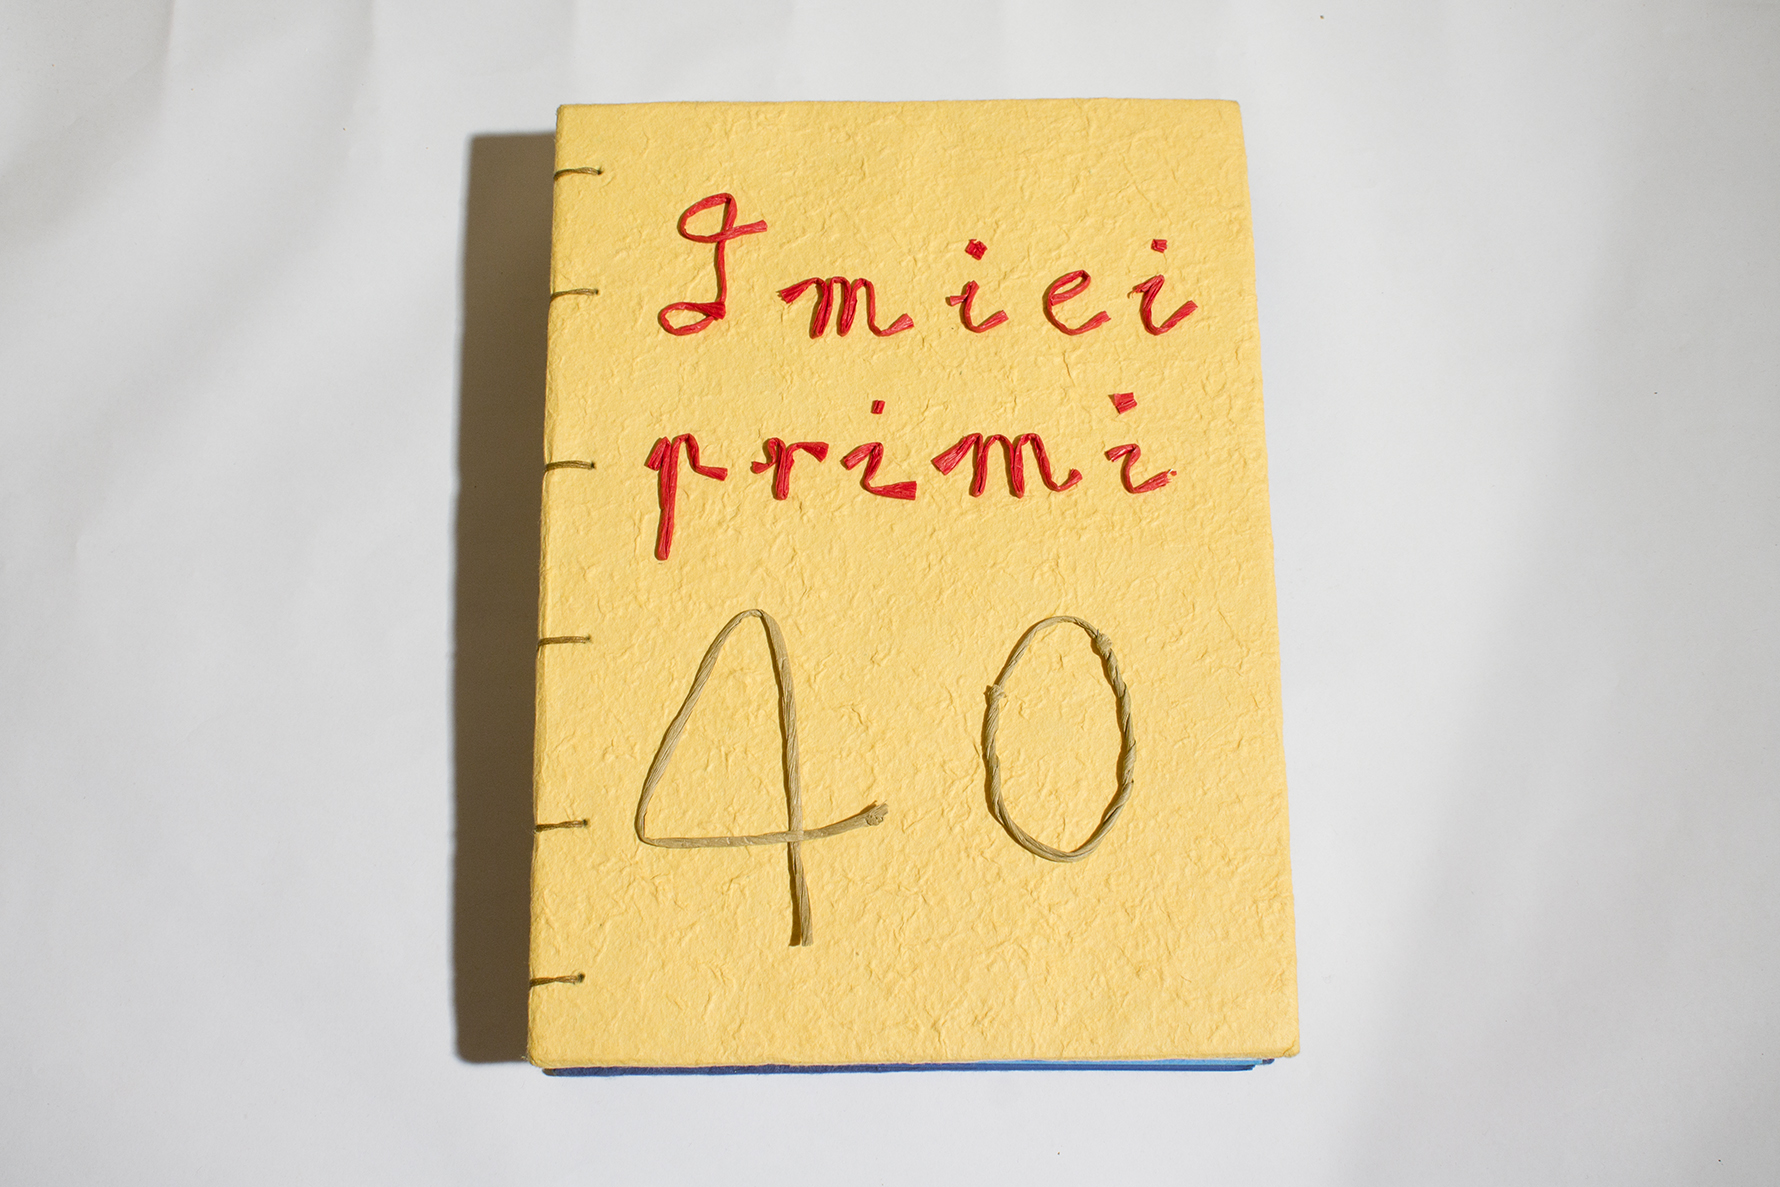 I miei
primi
40